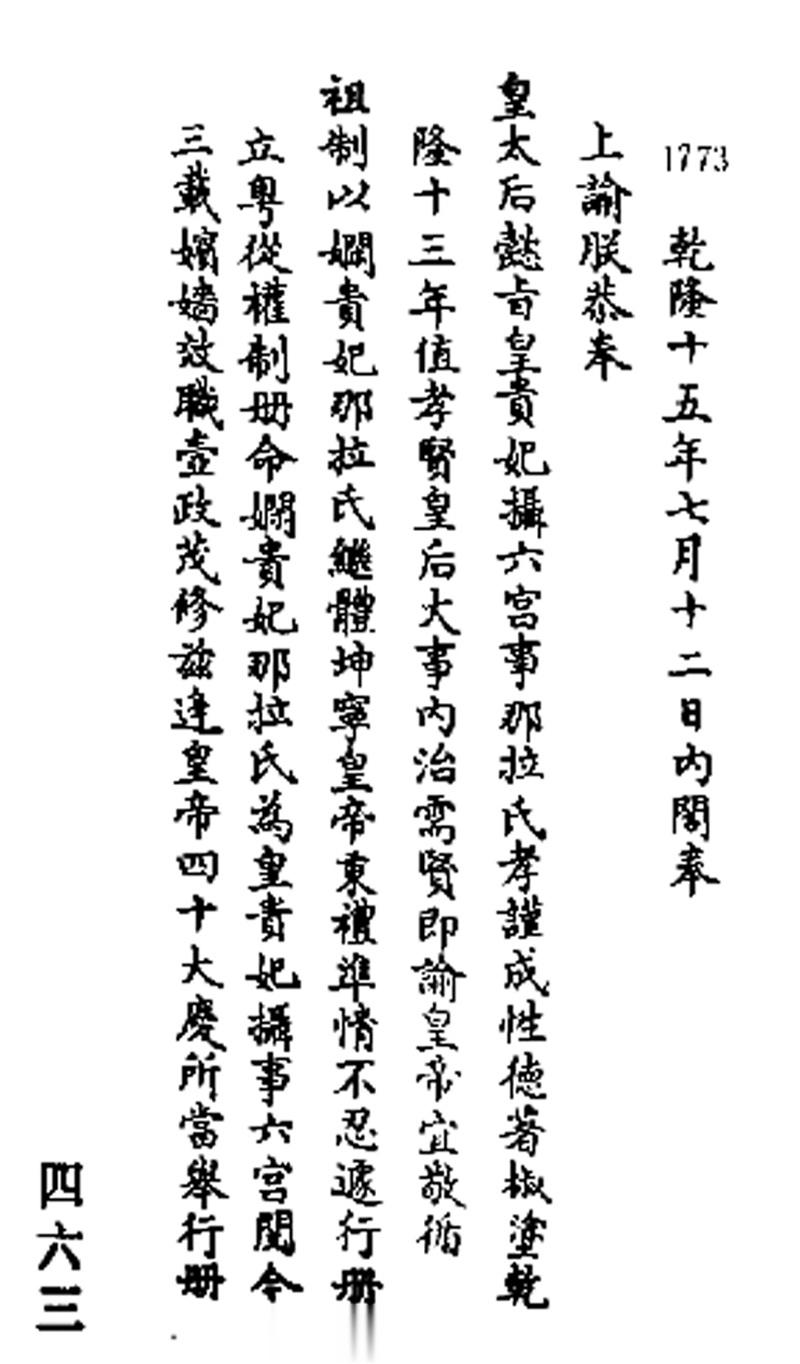 1773 乾隆十五年七月十二日內閣奉
上諭朕恭奉
皇太后懿旨皇貴妃攝六宮事那拉氏孝謹成性德著椒塗乾
隆十三年值孝賢皇后大事內治需賢即諭皇帝宜敬循
祖制以嫻貴妃那拉氏繼體坤寧皇帝秉禮準情不忍遽行册
立粤從權制册命嫻貴妃那拉氏為皇貴妃攝事六宮閱今
三載嬪嬙效職壼政茂修茲逢皇帝四十大慶所當舉行册
四六三